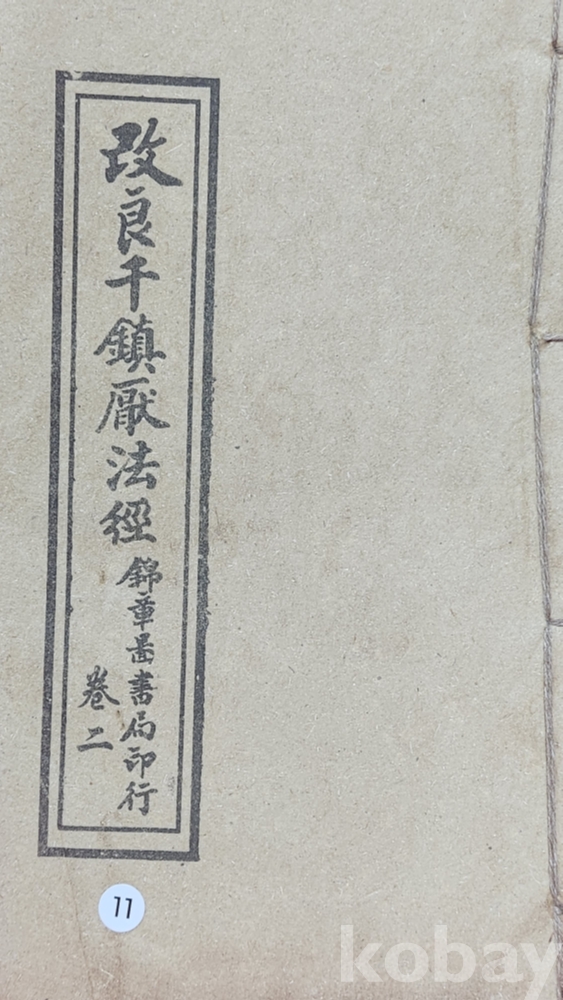 改良千鎮厭法經
錦章啚書局印行
卷二
11
kobay